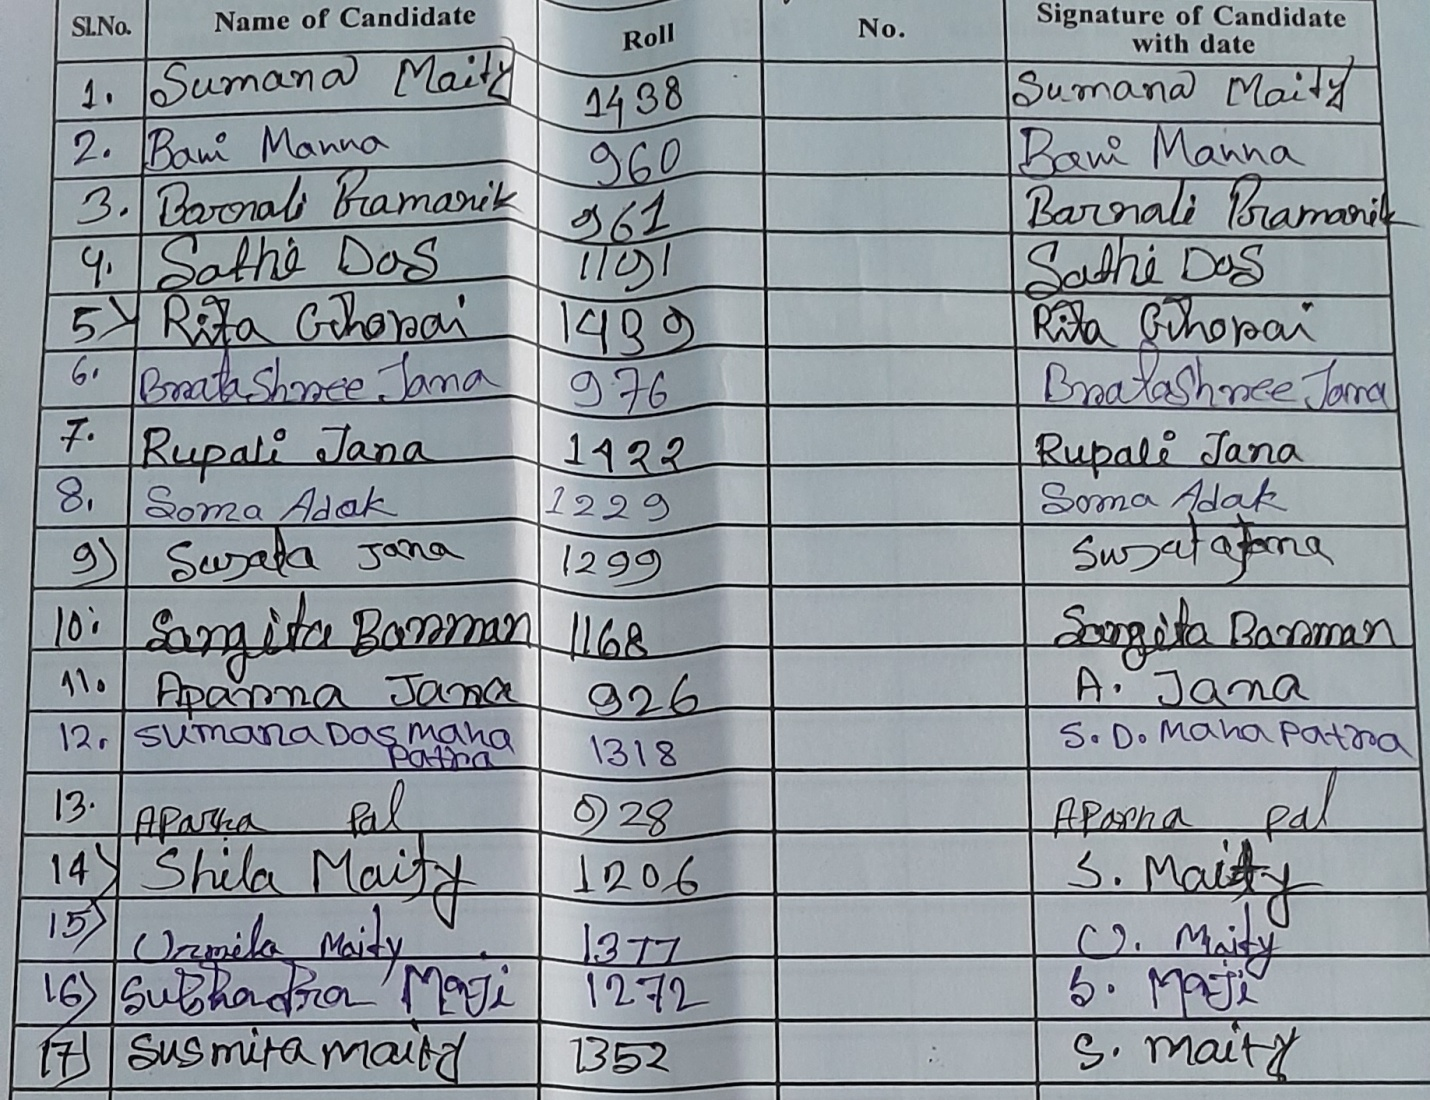 Sl.No. Name of Candidate Roll No. Signature of Candidate with date
1. Sumana Maity 1438 Sumana Maity
2. Bani Manna 960 Bani Manna
3. Barnali Pramanik 961 Barnali Pramanik
4. Sathi Das 1191 Sathi Das
5) Rita Ghorai 1439 Rita Ghorai
6. Bratashree Jana 976 Bratashree Jana
7. Rupali Jana 1422 Rupali Jana
8. Soma Adak 1229 Soma Adak
9) Sujata Jana 1299 Sujata Jana
10: Sangita Barman 1168 Sangita Barman
11. Aparna Jana 926 A. Jana
12. Sumana Das Maha Patra 1318 S. D. Maha Patra
13. Aparna pal 928 Aparna pal
14) Shila Maity 1206 S. Maity
15) Urmila Maity 1377 U. Maity
16) Subhadra Maji 1272 S. Maji
17) Susmita maity 1352 S. maity